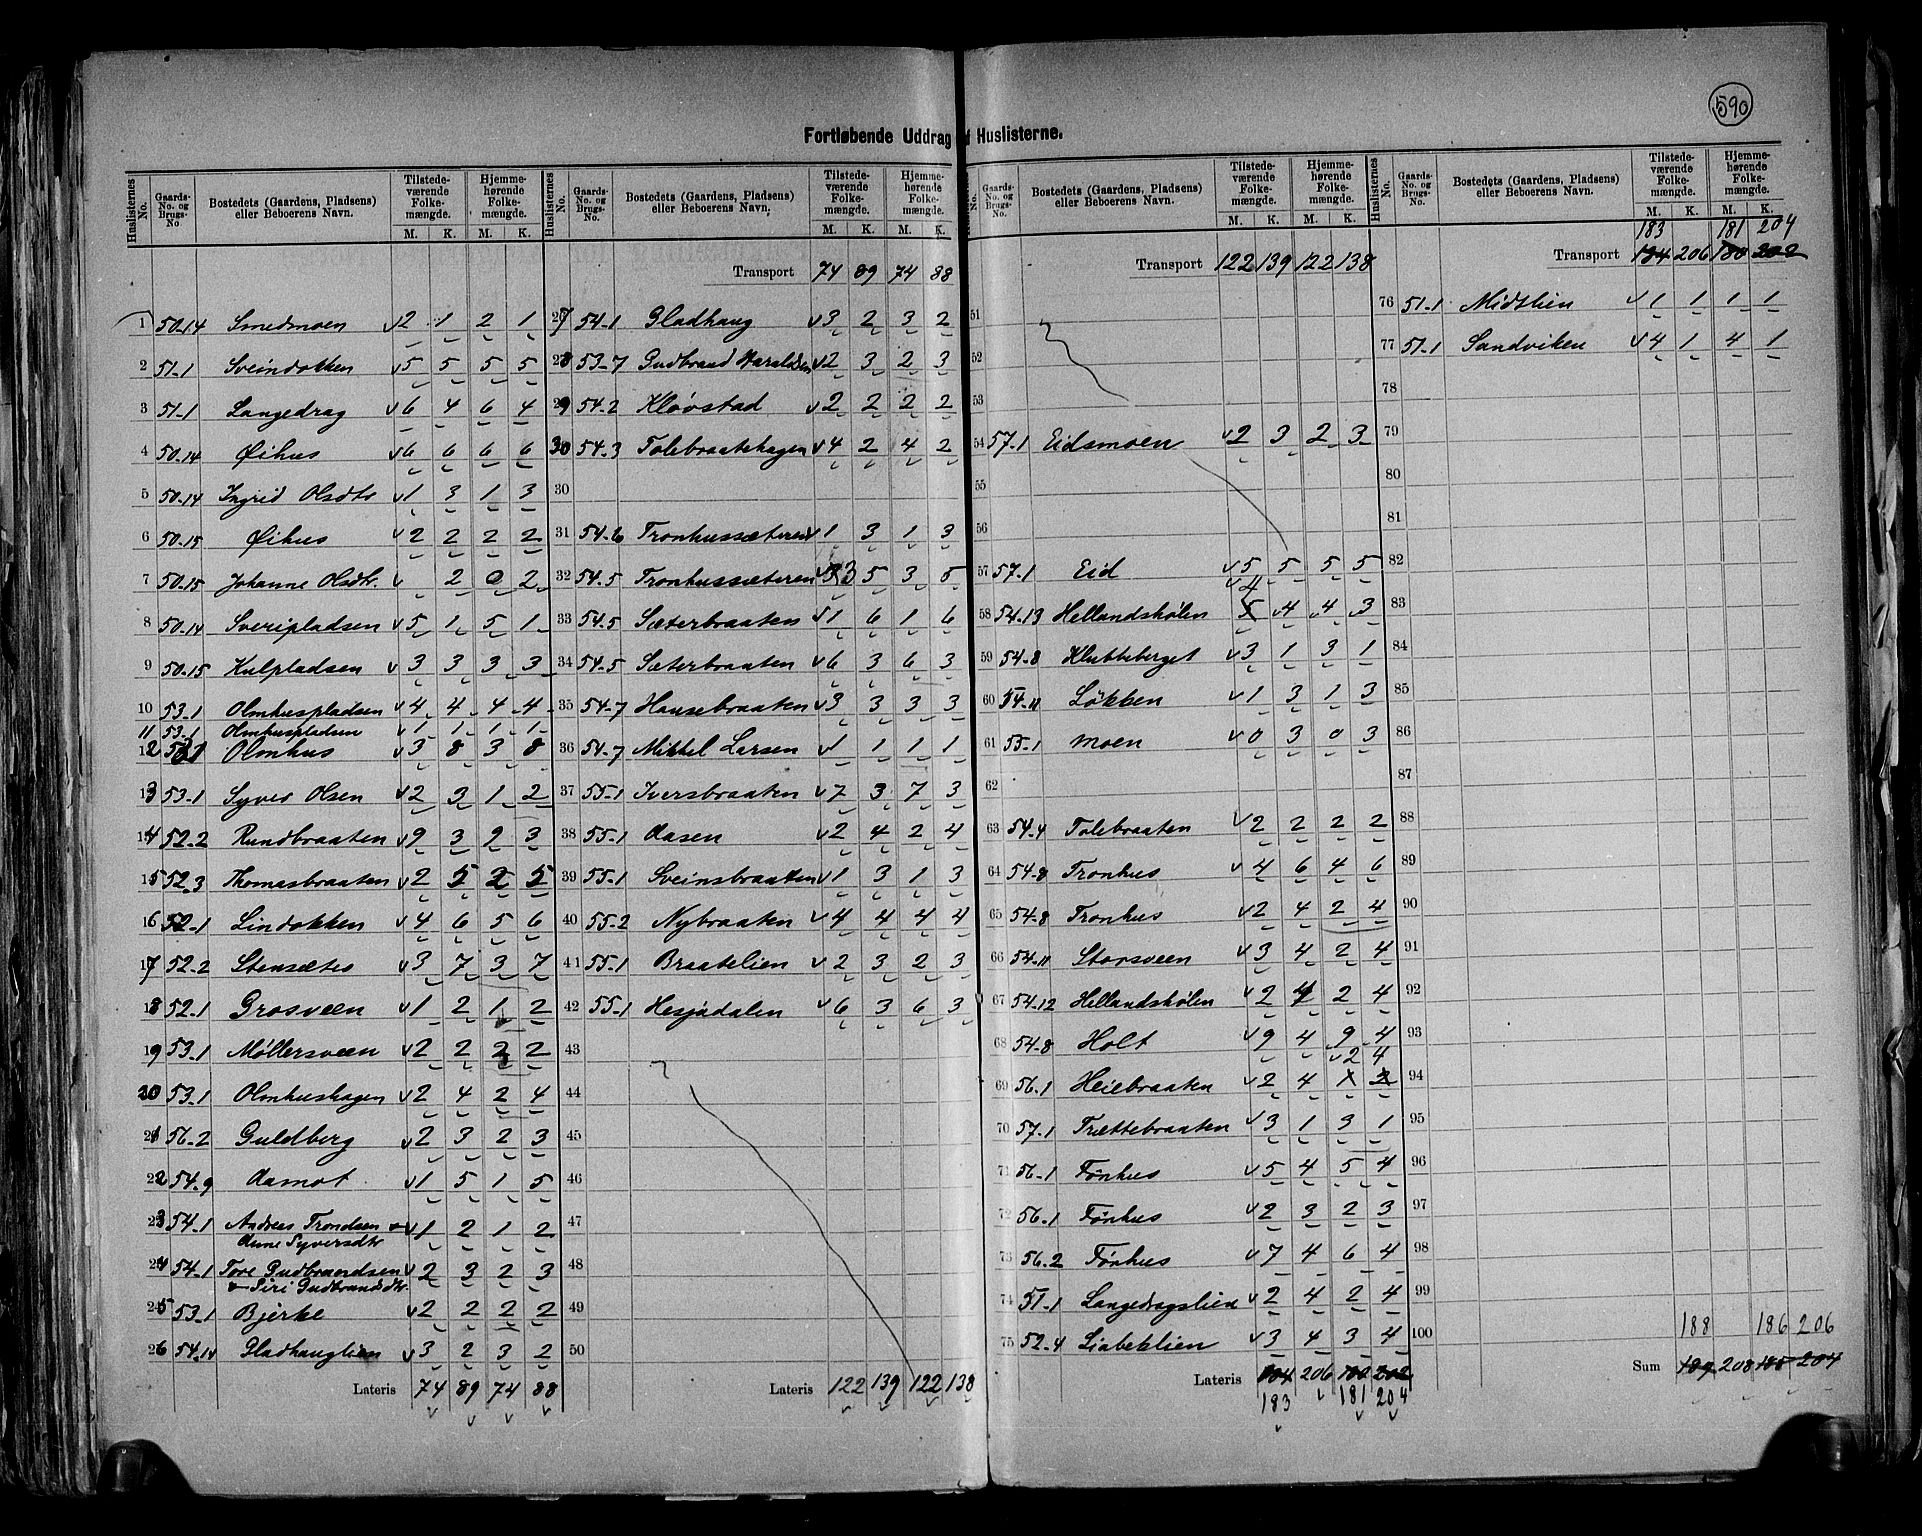 590
Fortløbende Uddrag f Huslisterne.
Huslisternes No. | Gaards-No. og Brugs-No. | Bostedets (Gaardens, Pladsens) eller Beboerens Navn. | Tilstedeværende Folkemængde. M. K. | Hjemmehørende Folkemængde. M. K.
1 50-14 Smedmoen 2 1 2 1
2 51-1 Sveindokken 5 5 5 5
3 51-1 Langedrag 6 4 6 4
4 50-14 Øihus 6 6 6 6
5 50-14 Ingrid Olsdtr 1 3 1 3
6 50-15 Øihus 2 2 2 2
7 50-15 Johanne Olsdtr. 2 0 2
8 50-14 Sveripladsen 5 1 5 1
9 50-15 Kulpladsen 3 3 3 3
10 53-1 Olmhuspladsen 4 4 4 4
11 53-1 Olmhuspladsen 1 1 1 1
12 53-1 Olmhus 3 8 3 8
13 53-1 Syver Olsen 2 3 1 2
14 52-2 Rundbraaten 2 3 2 3
15 52-3 Thomasbraaten 2 5 2 5
16 52-1 Lindokken 4 6 5 6
17 52-2 Stensæter 3 7 3 7
18 52-1 Grosveen 1 2 1 2
19 53-1 Møllersveen 2 2 2 2
20 53-1 Olmhushagen 2 4 2 4
21 56-2 Guldberg 2 3 2 3
22 54-9 Aamot 1 5 1 5
23 54-1 Andreas Trondsen &
Anne Syversdtr 1 2 1 2
24 54-1 Tore Gudbrandsen
& Siri Gudbrandsdtr. 2 3 2 3
25 53-1 Bjerke 2 2 2 2
26 54-14 Gladhauglien 3 2 3 2
Lateris 74 89 74 88
Huslisternes No. | Gaards-No. og Brugs-No. | Bostedets (Gaardens, Pladsens) eller Beboerens Navn. | Tilstedeværende Folkemængde. M. K. | Hjemmehørende Folkemængde. M. K.
Transport 74 89 74 88
27 54-1 Gladhaug 3 2 3 2
28 53-7 Gudbrand Haraldsen 2 3 2 3
29 54-2 Kløvstad 2 2 2 2
30 54-3 Tolebraatehagen 4 2 4 2
30
31 54-6 Tronhussæteren 1 3 1 3
32 54-5 Tronhussæteren 3 5 3 5
33 54-5 Sæterbraaten 1 6 1 6
34 54-5 Sæterbraaten 6 3 6 3
35 54-7 Hansebraaten 3 3 3 3
36 54-7 Mikkel Larsen 1 1 1 1
37 55-1 Iversbraaten 7 3 7 3
38 55-1 Aasen 2 4 2 4
39 55-1 Sveinsbraaten 1 3 1 3
40 55-2 Nybraaten 4 4 4 4
41 55-1 Braatelien 2 3 2 3
42 55-1 Hesjedalen 6 3 6 3
43
44
45
46
47
48
49
50
Lateris 122 139 122 138
No. | Gaards-No. og Brugs-No. | Bostedets (Gaardens, Pladsens) eller Beboerens Navn. | Tilstedeværende Folkemængde. M. K. | Hjemmehørende Folkemængde. M. K.
Transport 122 139 122 138
51
52
53
54 57-1 Eidsmoen 2 3 2 3
55
56
57 57-1 Eid 5 5 5 5
4
58 54-13 Hellandshølen 5 4 4 3
59 54-8 Klutteberget 3 1 3 1
60 54-11 Løkken 1 3 1 3
61 55-1 Moen 0 3 0 3
62
63 54-4 Tolebraaten 2 2 2 2
64 54-8 Tronhus 4 6 4 6
65 54-8 Tronhus 2 4 2 4
66 54-11 Storsveen 3 4 2 4
67 54-12 Hellandshølen 2 4 2 4
68 54-8 Holt 9 4 9 4
2 4
69 56-1 Heiebraaten 2 4
70 57-1 Trættebraaten 3 1 3 1
71 56-1 Fønhus 5 4 5 4
72 56-1 Fønhus 2 3 2 3
73 56-2 Fønhus 7 4 6 4
74 51-1 Langedragslien 2 4 2 4
75 52-4 Liabeklien 3 4 3 4
Lateris 184 206 180 202
183 181 204
Huslisternes No. | Gaards-No. og Brugs-No. | Bostedets (Gaardens, Pladsens) eller Beboerens Navn. | Tilstedeværende Folkemængde. M. K. | Hjemmehørende Folkemængde. M. K.
183 181 204
Transport 184 206 180 202
76 51-1 Midtlien 1 1 1 1
77 51-1 Sandviken 4 1 4 1
78
79
80
81
82
83
84
85
86
87
88
89
90
91
92
93
94
95
96
97
98
99
100
188 186 206
Sum 189 208 185 204